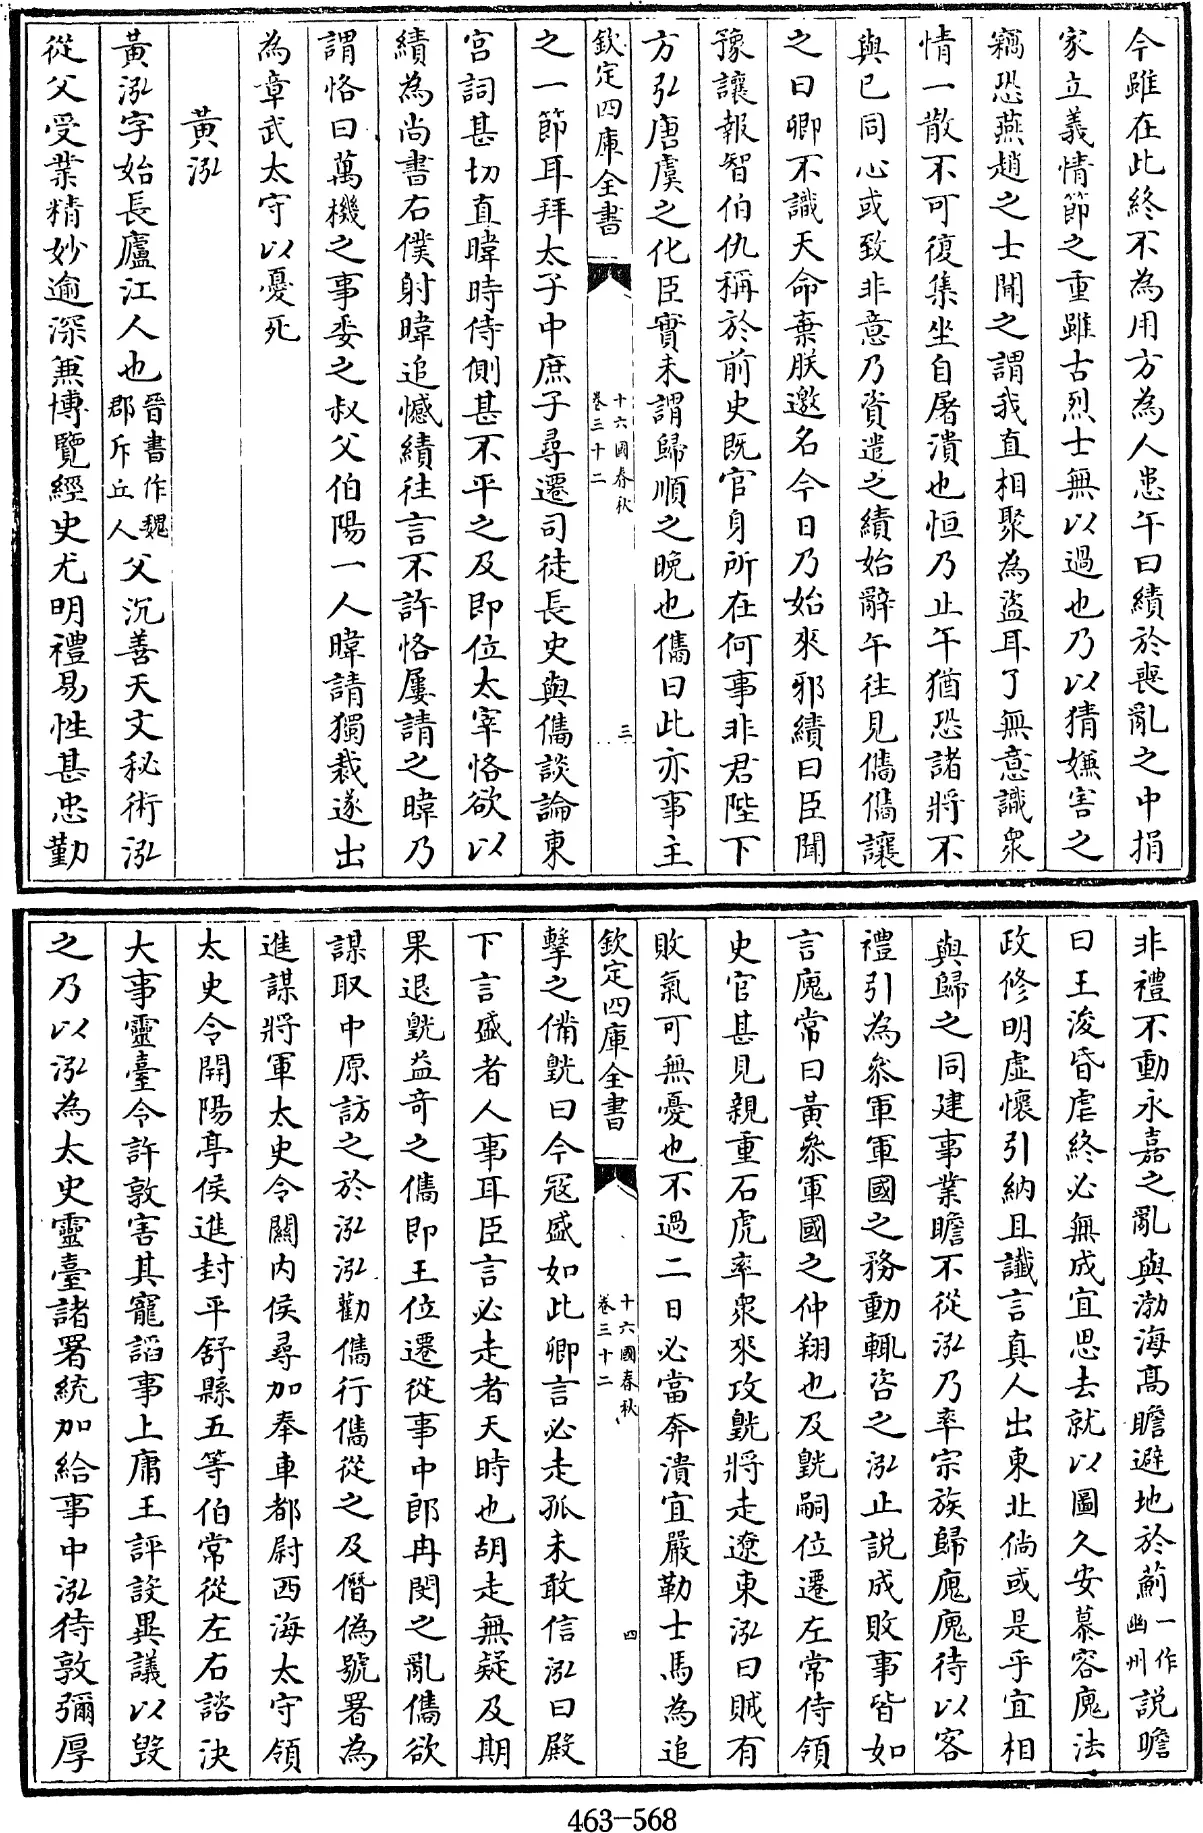 今雖在此終不為用方為人患午曰績於喪亂之中捐
家立義情節之重雖古烈士無以過也乃以猜嫌害之
竊恐燕趙之士聞之謂我直相聚為盜耳了無意識衆
情一散不可復集坐自屠潰也恒乃止午猶恐諸將不
與已同心或致非意乃資遣之績始辭午往見儁儁讓
之曰卿不識天命棄朕邀名今日乃始來邪績曰臣聞
豫讓報智伯仇稱於前史既官身所在何事非君陛下
方弘唐虞之化臣實未謂歸順之晚也儁曰此亦事主
欽定四庫全書
十六國春秋
卷三十二
三
之一節耳拜太子中庶子尋遷司徒長史與儁談論東
宮詞甚切直暐時侍側甚不平之及即位太宰恪欲以
績為尚書右僕射暐追憾績往言不許恪屢請之暐乃
謂恪曰萬機之事委之叔父伯陽一人暐請獨裁遂出
為章武太守以憂死
黃泓
黃泓字始長廬江人也晉書作魏郡斥丘人父沉善天文秘術泓
從父受業精妙逾深兼博覽經史尤明禮易性甚忠勤
非禮不動永嘉之亂與渤海高瞻避地於薊一作幽州說瞻
曰王浚昏虐終必無成宜思去就以圖久安慕容廆法
政修明虛懷引納且讖言真人出東北倘或是乎宜相
與歸之同建事業瞻不從泓乃率宗族歸廆廆待以客
禮引為叅軍軍國之務動輒咨之泓止說成敗事皆如
言廆常曰黃叅軍國之仲翔也及皝嗣位遷左常侍領
史官甚見親重石虎率衆來攻皝將走遼東泓曰賊有
敗氣可無憂也不過二日必當奔潰宜嚴勒士馬為追
欽定四庫全書
十六國春秋
卷三十二
四
擊之備皝曰今寇盛如此卿言必走孤未敢信泓曰殿
下言盛者人事耳臣言必走者天時也胡走無疑及期
果退皝益奇之儁即王位遷從事中郎冉閔之亂儁欲
謀取中原訪之於泓泓勸儁行儁從之及僭偽號署為
進謀將軍太史令關內侯尋加奉車都尉西海太守領
太史令開陽亭侯進封平舒縣五等伯常從左右諮決
大事靈臺令許敦害其寵諂事上庸王評設異議以毀
之乃以泓為太史靈臺諸署統加給事中泓待敦彌厚
463-568